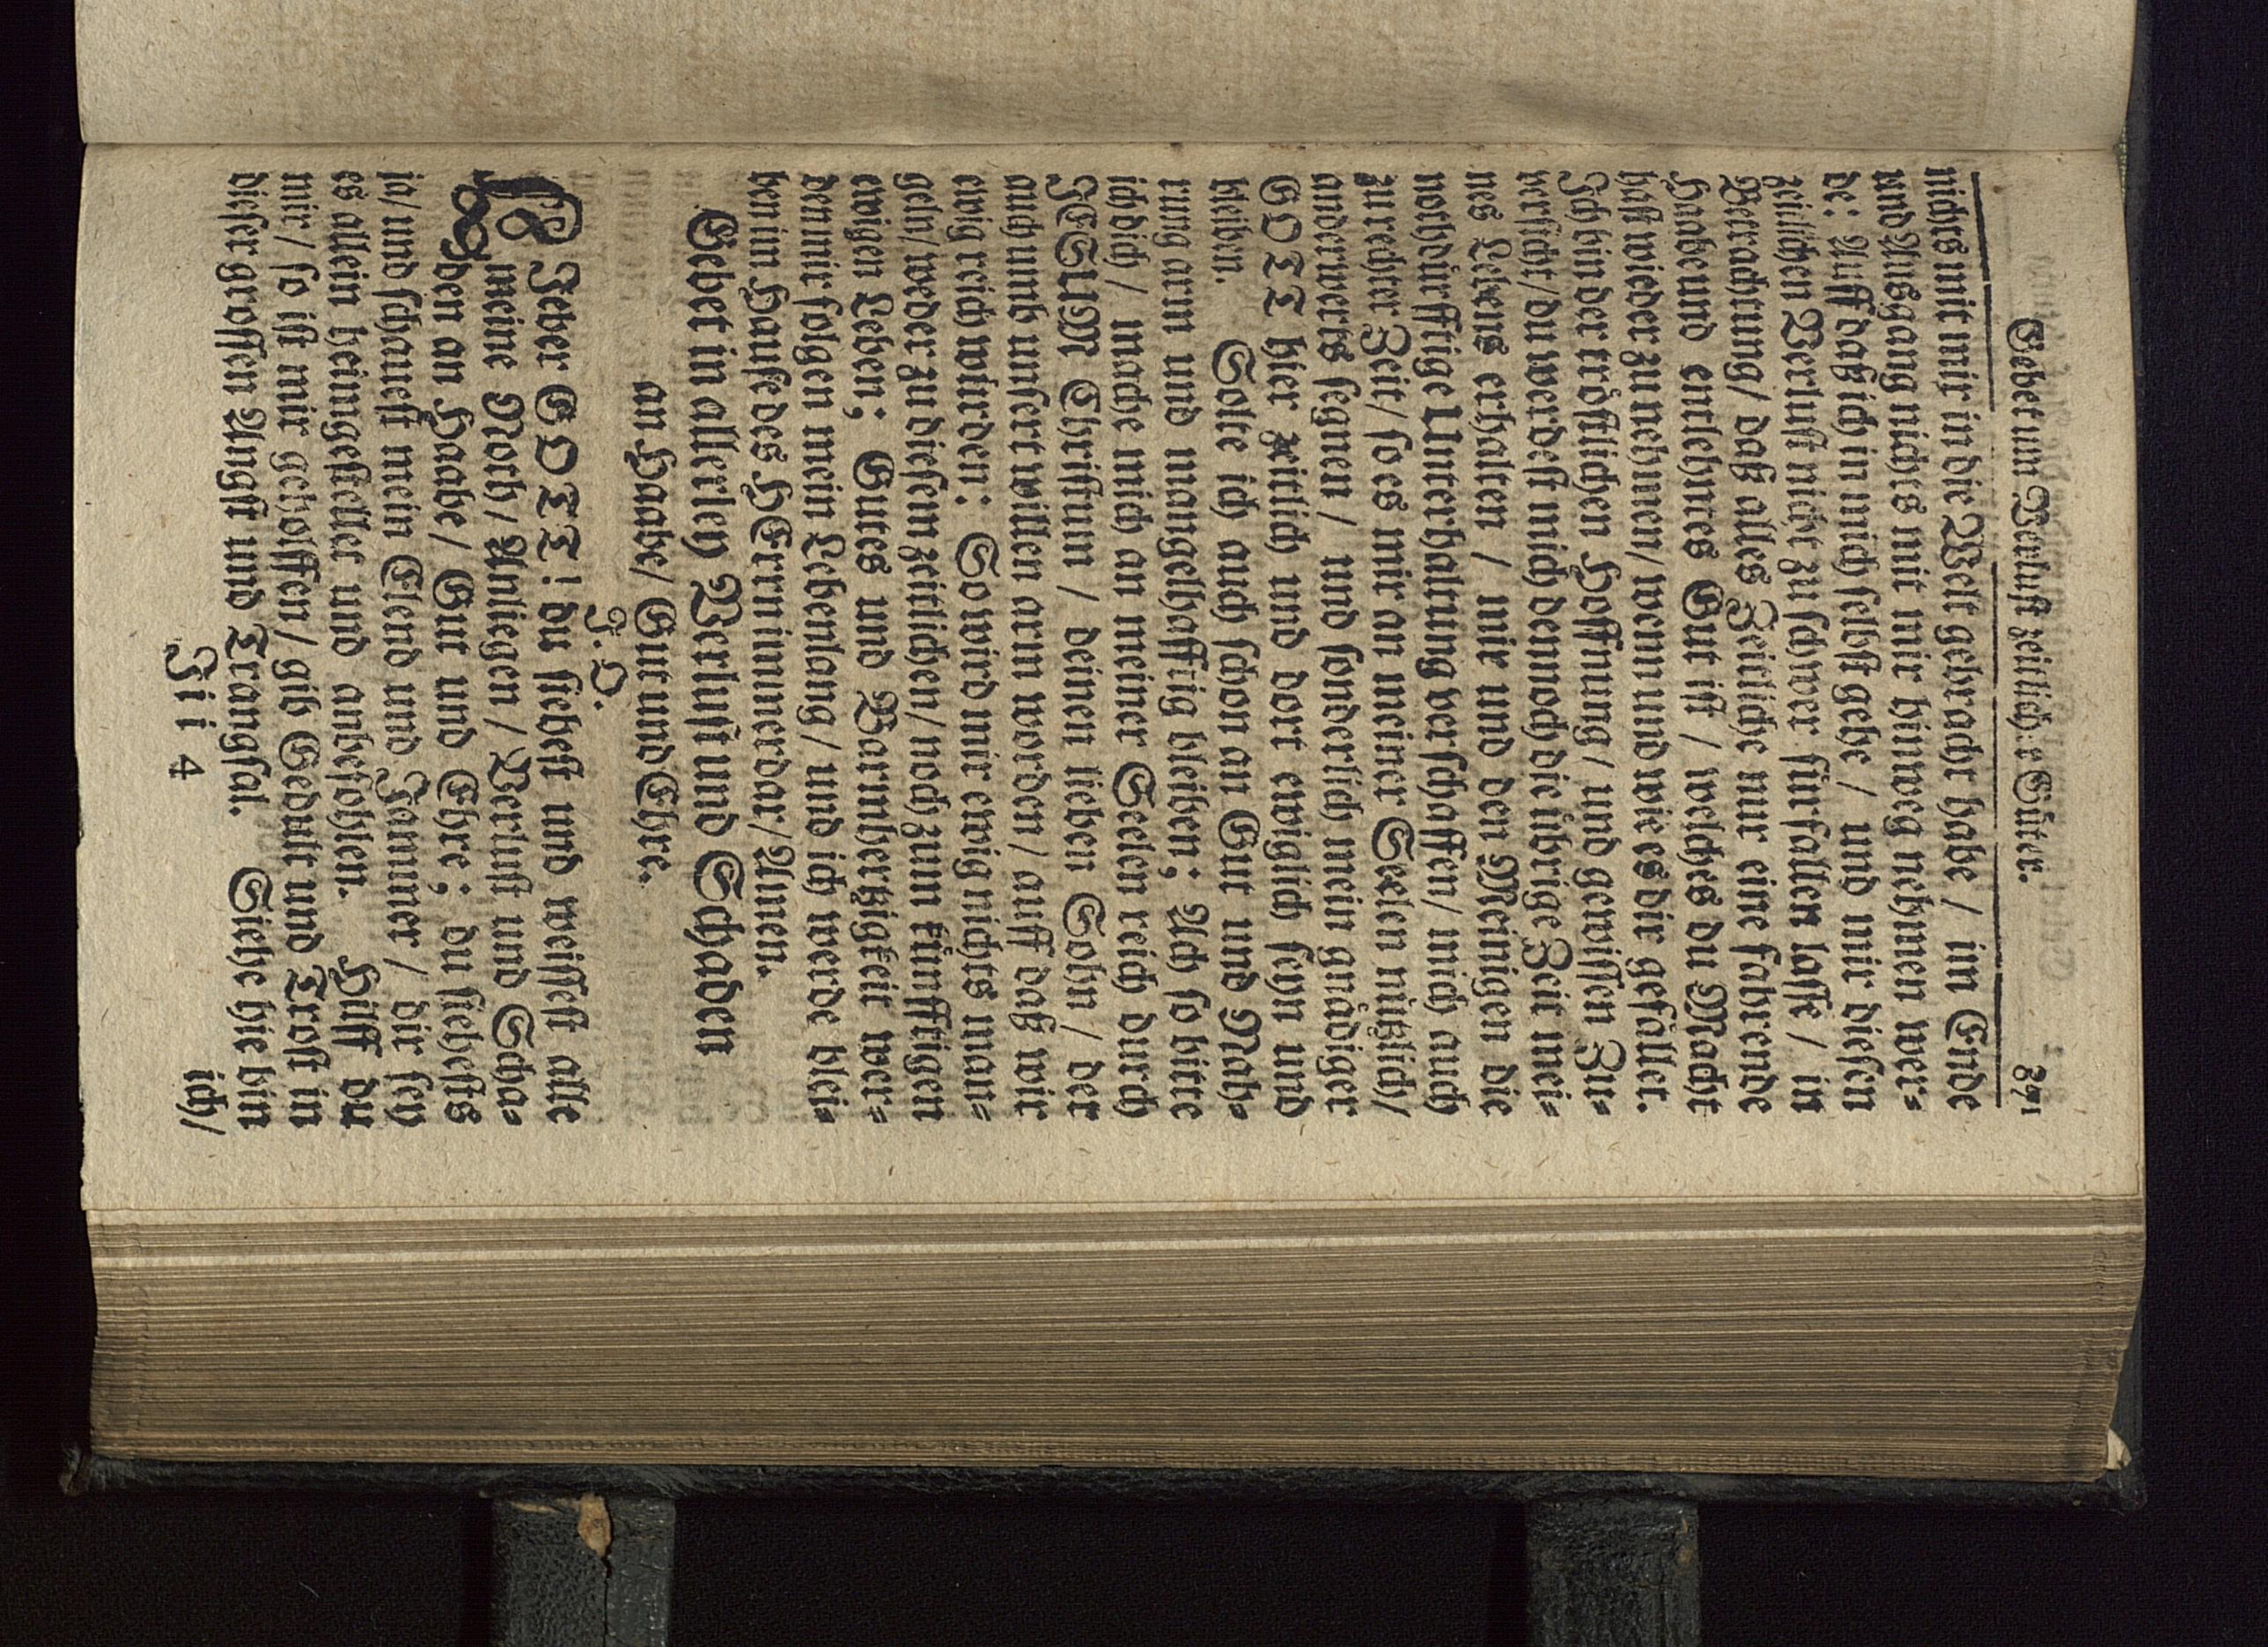 Gebet um Verlust zeitlicher Güter. 871
nichts mit mir in die Welt gebracht habe / im Ende
und Außgang nichts mit mir hinweg nehmen wer⸗
de: Auff daß ich in mich selbst gehe / und mir diesen
zeitlichen Verlust nicht zu schwer fürfallen lasse / in
Betrachtung / daß alles Zeitliche nur eine fahrende
Haabe und entlehntes Gut ist / welches du Macht
hast wieder zu nehmen / wenn und wie es dir gefället.
Ich bin der tröstlichen Hoffnung / und gewissen Zu⸗
versicht / du werdest mich dennoch die übrige Zeit mei⸗
nes Lebens erhalten / mir und den Meinigen die
nothdürfftige Unterhaltung verschaffen / mich auch
zu rechter Zeit / so es mir an meiner Seelen nützlich /
anderwerts segnen / und sonderlich mein gnädiger
GOTT hier zeitlich und dort ewiglich seyn und
bleiben. Solte ich auch schon an Gut und Nah⸗
rung arm und mangelhafftig bleiben; Ach so bitte
ich dich / mache mich an meiner Seelen reich durch
JESUM Christum / deinen lieben Sohn / der
auch umb unsert willen arm worden / auff daß wir
ewig reich würden: So wird mir ewig nichts man⸗
geln / weder zu diesem zeitlichen / noch zum künfftigen
ewigen Leben; Gutes und Barmhertzigkeit wer⸗
den mir folgen mein Lebenlang / und ich werde blei⸗
ben im Hause des HErrn immerdar / Amen.
Gebet in allerley Verlust und Schaden
an Haabe / Gut und Ehre.
J. O.
LIeber GOTT! du siehest und weissest alle
meine Noth / Anliegen / Verlust und Scha⸗
den an Haabe / Gut und Ehre; du siehests
ja / und schauest mein Elend und Jammer / dir sey
es allein heimgestellet und anbefohlen. Hilff du
mir / so ist mir geholffen / gib Gedult und Trost in
dieser grossen Angst und Trangsal. Siehe hie bin
Jii 4 ich /